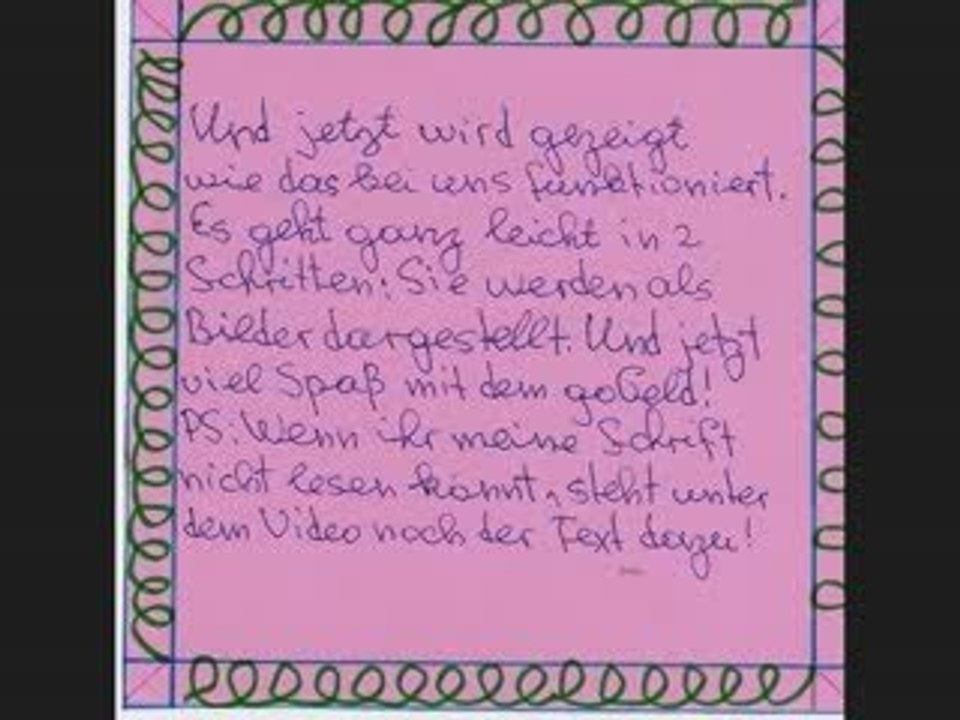 Und jetzt wird gezeigt
wie das bei uns funktioniert.
Es geht ganz leicht in 2
Schritten: Sie werden als
Bilder dargestellt. Und jetzt
viel Spaß mit dem goGeld!
PS: Wenn ihr meine Schrift
nicht lesen könnt, steht unter
dem Video noch der Text dazu!